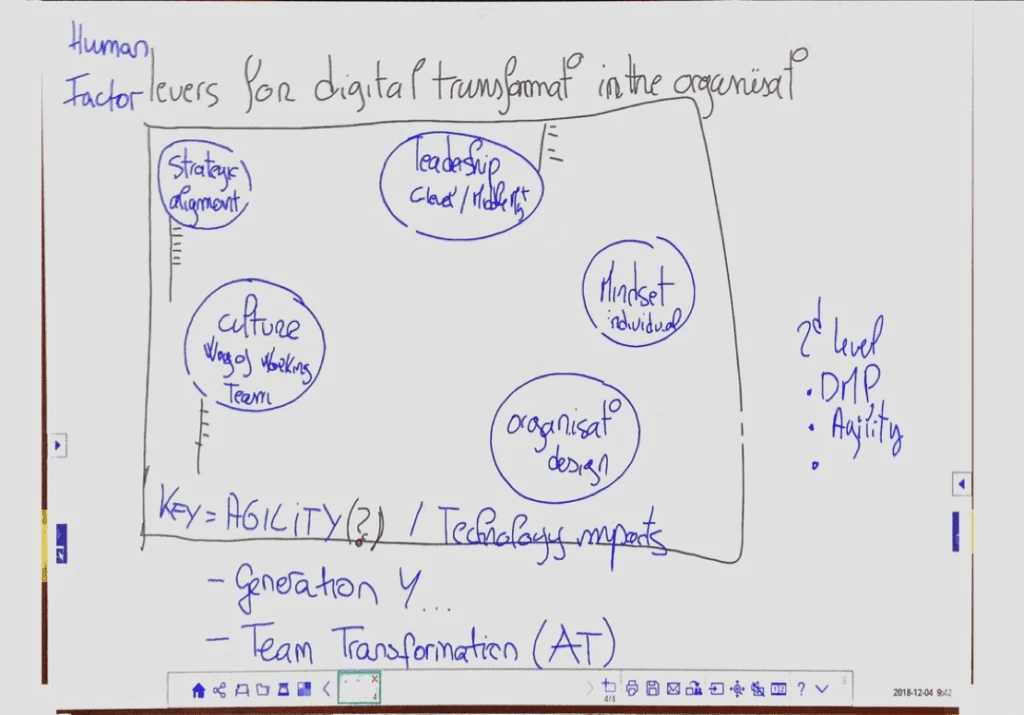 Human
Factor levers for digital transformat° in the organisat°
Strategic
alignment
leadership
Clevel / Middle Mgt
Mindset
individual
Culture
Way of Working
Team
organisat°
design
2d level
• DMP
• Agility
•
KEY = AGILITY (?) / Technology impacts
- Generation Y...
- Team Transformation (AT)
4
4/4
?
2018-12-04 9:42